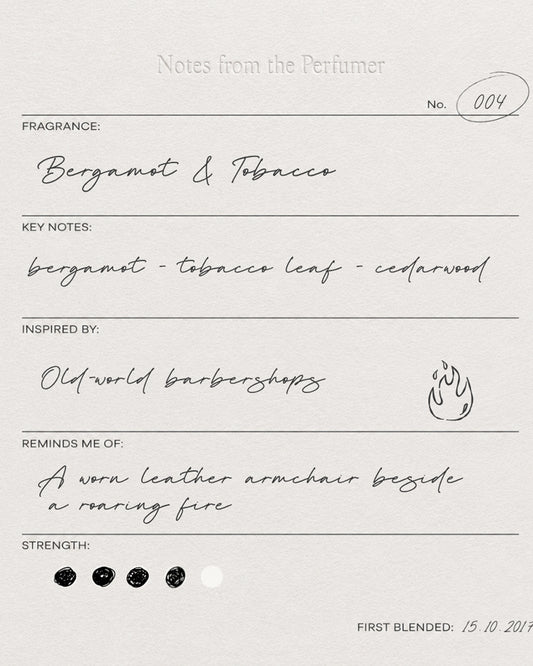 Notes from the Perfumer
No. 004
FRAGRANCE:
Bergamot & Tobacco
KEY NOTES:
bergamot - tobacco leaf - cedarwood
INSPIRED BY:
Old-world barbershops
REMINDS ME OF:
A worn leather armchair beside
a roaring fire
STRENGTH:
FIRST BLENDED: 15.10.2017